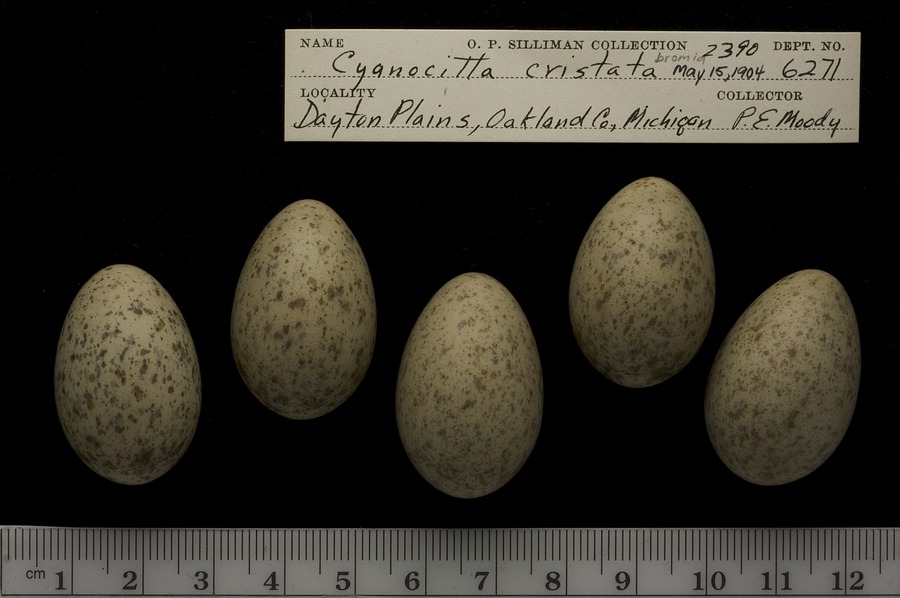 NAME O. P. SILLIMAN COLLECTION 2390 DEPT. NO.
Cyanocitta cristata bromia May 15, 1904 6271
LOCALITY COLLECTOR
Dayton Plains, Oakland Co., Michigan P.E. Moody
cm 1 2 3 4 5 6 7 8 9 10 11 12